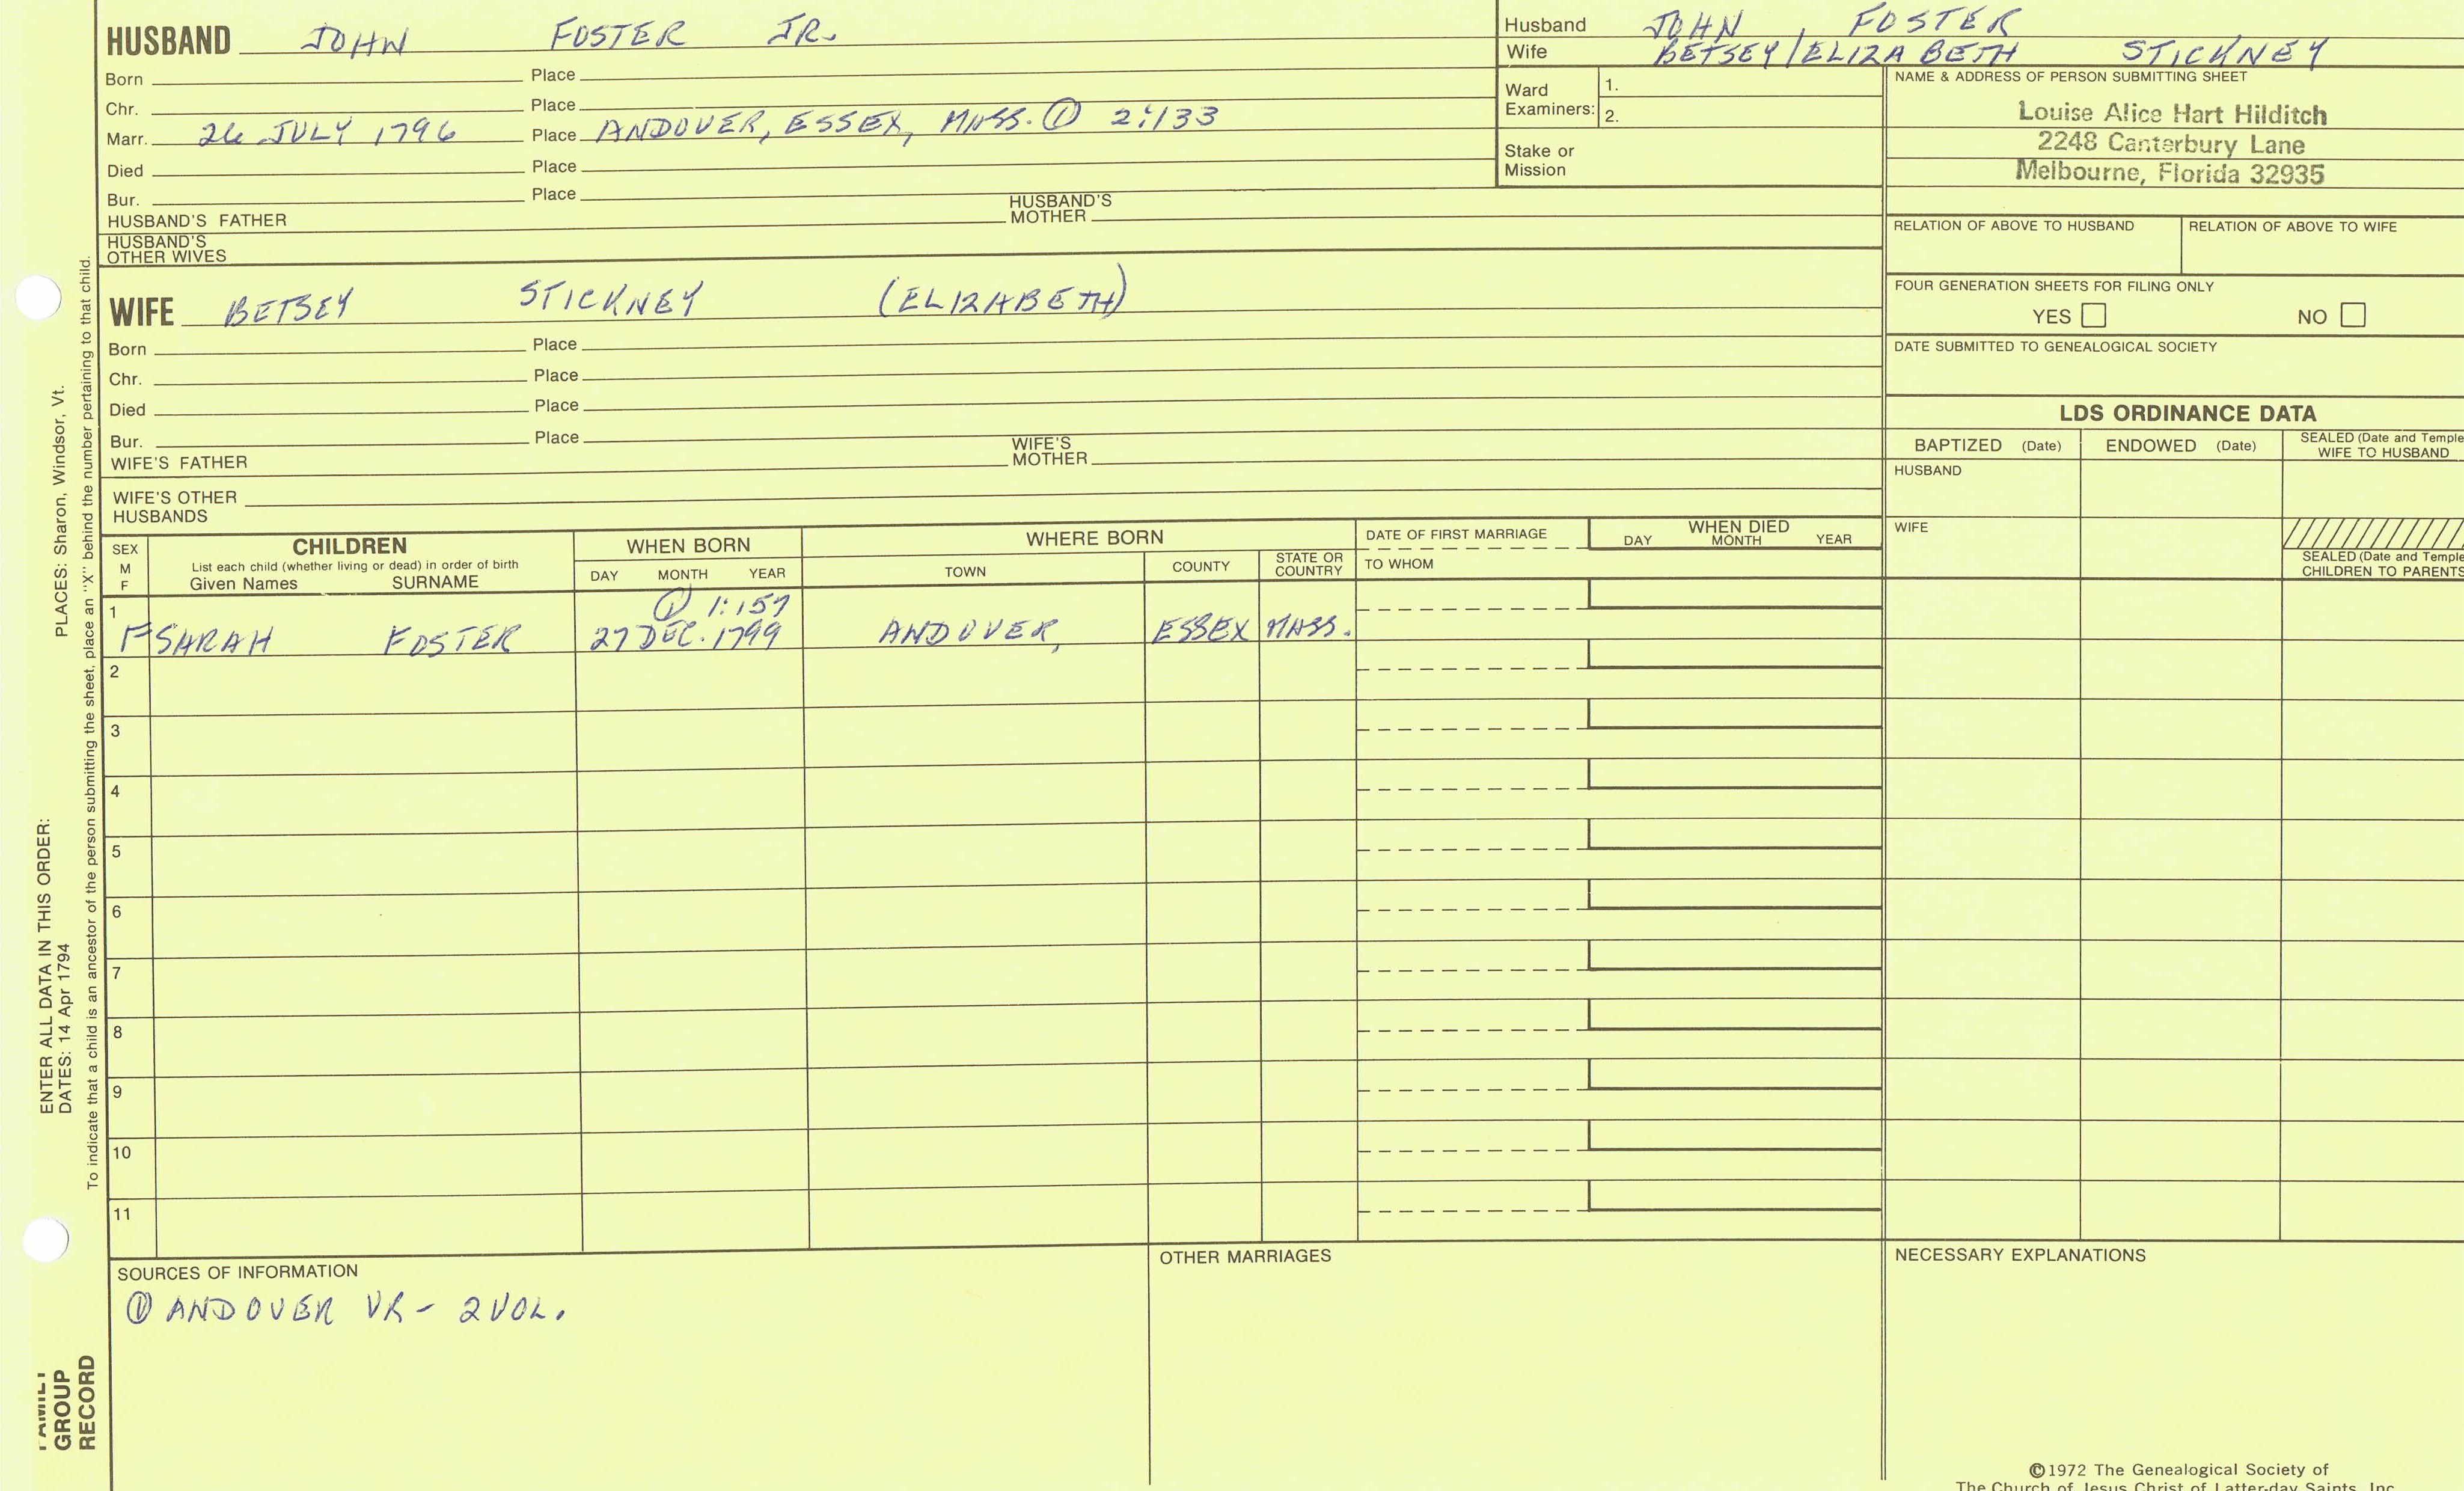 HUSBAND JOHN FOSTER JR.
Born Place
Chr. Place
Marr. 26 JULY 1796 Place ANDOVER, ESSEX, MASS. ① 2:133
Died Place
Bur. Place
HUSBAND'S FATHER HUSBAND'S MOTHER
HUSBAND'S OTHER WIVES
Husband JOHN FOSTER
Wife BETSEY/ELIZABETH STICKNEY
Ward Examiners: 1. 2.
Stake or Mission
NAME & ADDRESS OF PERSON SUBMITTING SHEET
Louise Alice Hart Hilditch
2248 Canterbury Lane
Melbourne, Florida 32935
RELATION OF ABOVE TO HUSBAND RELATION OF ABOVE TO WIFE
FOUR GENERATION SHEETS FOR FILING ONLY
YES NO
DATE SUBMITTED TO GENEALOGICAL SOCIETY
WIFE BETSEY STICKNEY (ELIZABETH)
Born Place
Chr. Place
Died Place
Bur. Place
WIFE'S FATHER WIFE'S MOTHER
WIFE'S OTHER HUSBANDS
LDS ORDINANCE DATA
BAPTIZED (Date) ENDOWED (Date) SEALED (Date and Temple
WIFE TO HUSBAND
HUSBAND
WIFE
SEALED (Date and Temple
CHILDREN TO PARENTS
SEX M F
CHILDREN
List each child (whether living or dead) in order of birth
Given Names SURNAME
WHEN BORN
DAY MONTH YEAR
WHERE BORN
TOWN COUNTY STATE OR COUNTRY
DATE OF FIRST MARRIAGE
TO WHOM
WHEN DIED
DAY MONTH YEAR
1 ① 1:157
F SARAH FOSTER 27 DEC. 1799 ANDOVER, ESSEX MASS.
2
3
4
5
6
7
8
9
10
11
SOURCES OF INFORMATION
① ANDOVER VR - 2 VOL.
OTHER MARRIAGES
NECESSARY EXPLANATIONS
©1972 The Genealogical Society of
The Church of Jesus Christ of Latter-day Saints, Inc.
ENTER ALL DATA IN THIS ORDER:
DATES: 14 Apr 1794 PLACES: Sharon, Windsor, Vt.
To indicate that a child is an ancestor of the person submitting the sheet, place an "X" behind the number pertaining to that child.
FAMILY
GROUP
RECORD